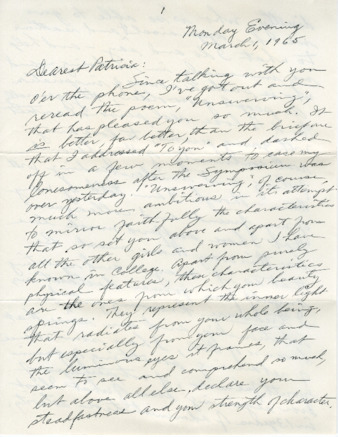 1
Monday Evening
March 1, 1965
Dearest Patricia:
Since talking with you
o'er the phone, I've got out and
reread the poem, "Unswerving",
that has pleased you so much. It
is better, far better than the
that I addressed "To you" and dashed
off in a few moments to ease my
lonesomeness after the Symposium was
over yesterday. "Unswerving", of course,
much more ambitious in its attempt
to mirror faithfully the characteristics
that so set you above and apart from
all the other girls and women I have
known in College. Apart from purely
physical features, these characteristics
are the ones from which your beauty
springs. They represent the inner light
that radiates from your whole being,
but especially from your face and
the luminous eyes it frames, that
seem to see and comprehend so much,
but above all else, declare your
steadfastness and your strength of character,